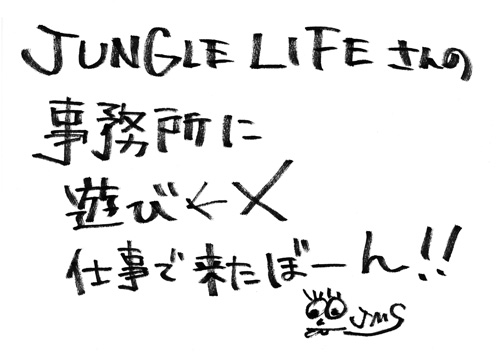 JUNGLE LIFE さんの
事務所に
遊び←×
仕事で来たぼーん!!
JMS